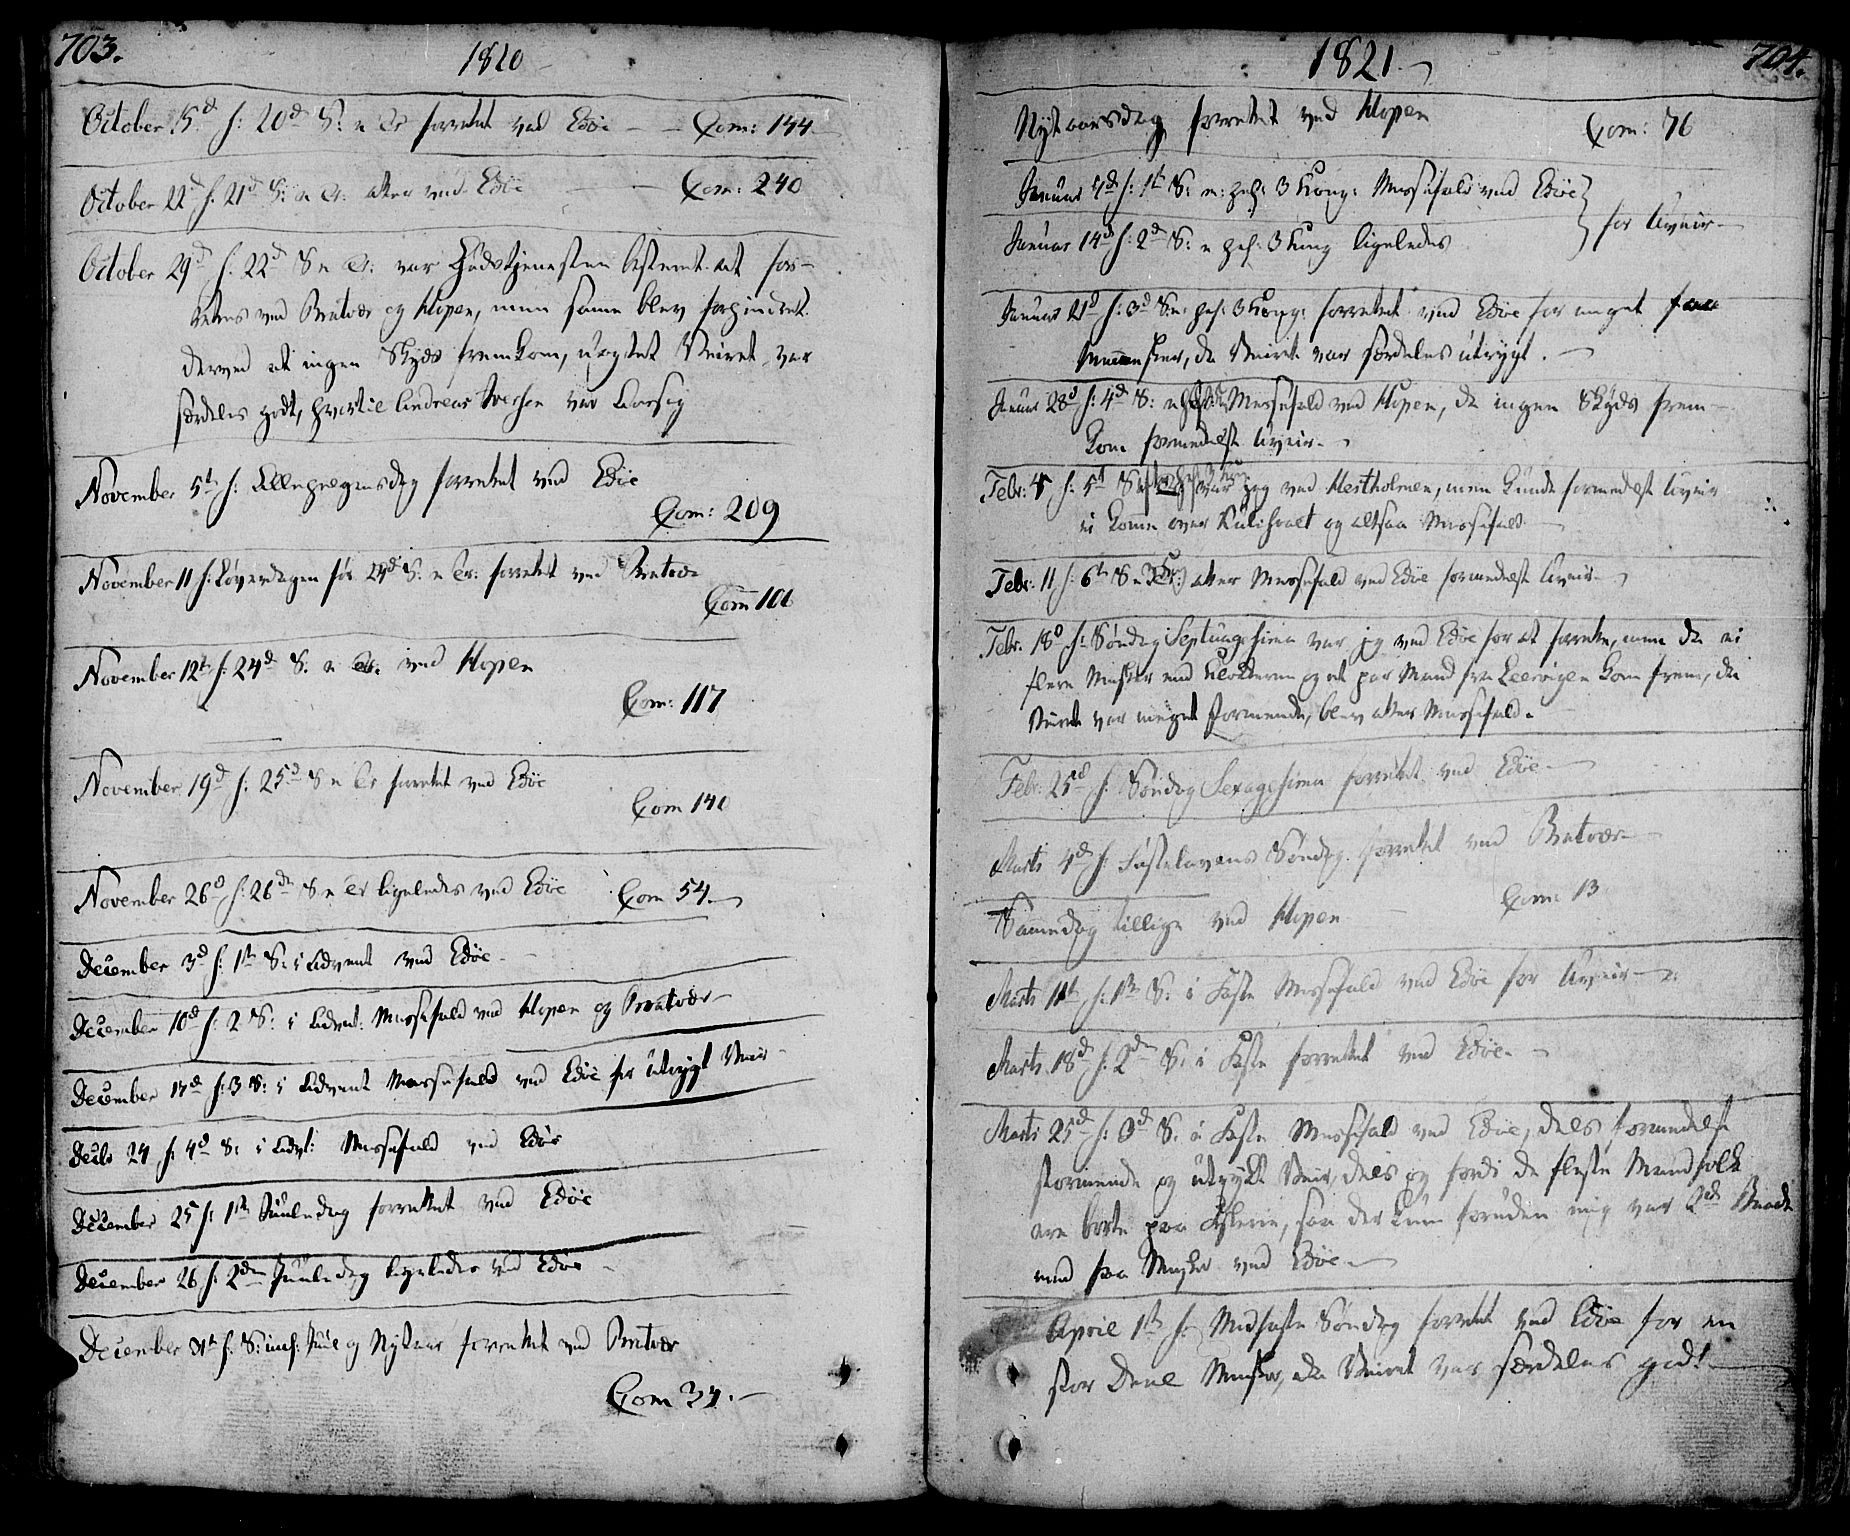 703.
1820
October 15d f: 20d S: e Tr forrettet ved Edöe — Com: 144
October 22d f. 21d S: e Tr. atter ved Edöe — Com: 240
October 29d f. 22d S e Tr: var Gudstjenesten bestemt at for-
rettes ved Bratvær og Hopen, men samme blev forhindret
derved at ingen Skyds fremkom, uagtet Veiret var
særdeles godt, hvortil Andreas Iversen var Aarsag
November 5te f: Allehelgensdag forrettet ved Edöe
Com: 209
November 11 f. Løverdagen før 24d S. e Tr: forrettet ved Bratvær
Com 106
November 12te f: 24d S: e Tr. ved Hopen
Com: 117
November 19d f. 25d S e Tr forrettet ved Edöe
Com 140
November 26d f: 26de S e Tr ligeledes ved Edöe Com 54.
December 3d f: 1ste S: i Advent ved Edöe
December 10d f: 2 S: i Advent: Messefald ved Hopen og Bratvær
December 17d f: 3 S: i Advent Messefald ved Edöe for utrygt Veir
Decbr 24 f. 4d S: i Advt: Messefald ved Edöe
December 25 f: 1ste Juuledag forrettet ved Edöe
December 26 f: 2den Juuledag ligeledes ved Edöe
December 31te f. S: imel: Juul og Nytaar forrettet ved Bratvær
Com 34.
1821
704.
Nytaarsdag forrettet ved Hopen Com: 76
Januar 7de f: 1ste S: e: hel: 3 Kong: Messefald ved Edöe
Januar 14d f: 2d S: e hel: 3 Kong ligeledes
for Uveir
Januar 21d f: 3d S e: hel: 3 Kong: forrettet ved Edöe for meget faa
Mennesker, da Veiret var særdeles utrygt.
Januar 28d f: 4d S: e Messefald ved Hopen, da ingen Skyds frem-
kom formedelst Uveir
Febr: 4 f: 5te S var jeg ved Hestholmen, men kunde formedelst Uveir
ei komme over og altsaa Messefald
Febr. 11 f: 6te S e 3 K: atter Messefald ved Edöe formedelst Uveir
Febr. 18d f: Søndag Septuagesima var jeg ved Edöe for at forrette, men da ei
flere Mesker end Klokkeren og et par Mand fra Leervigen kom frem, da
Veiret var meget stormende, blev atter Messefald.
Febr: 25d f. Søndag Sexagesima forrettet ved Edöe
Marts 4d f. Fastelavens Søndag forrettet ved Bratvær
Samme dag tillige ved Hopen Com: 13
Marts 11te f: 1ste S: i Faste Messefald ved Edöe for Uveir
Marts 18d f. 2den S: i Faste forrettet ved Edöe.
Marts 25d f: 3d S. i Faste Messefald ved Edöe, dels formedelst
stormende og utrygt Veir, dels og fordi de fleste Mandfolk
ere borte paa Fiskerie, saa der kun foruden mig var 2de Baade
med faa Mesker ved Edöe.
April 1ste f: Midfaste Søndag forrettet ved Edöe for en
stor Deel Mesker, da Veiret var særdeles godt